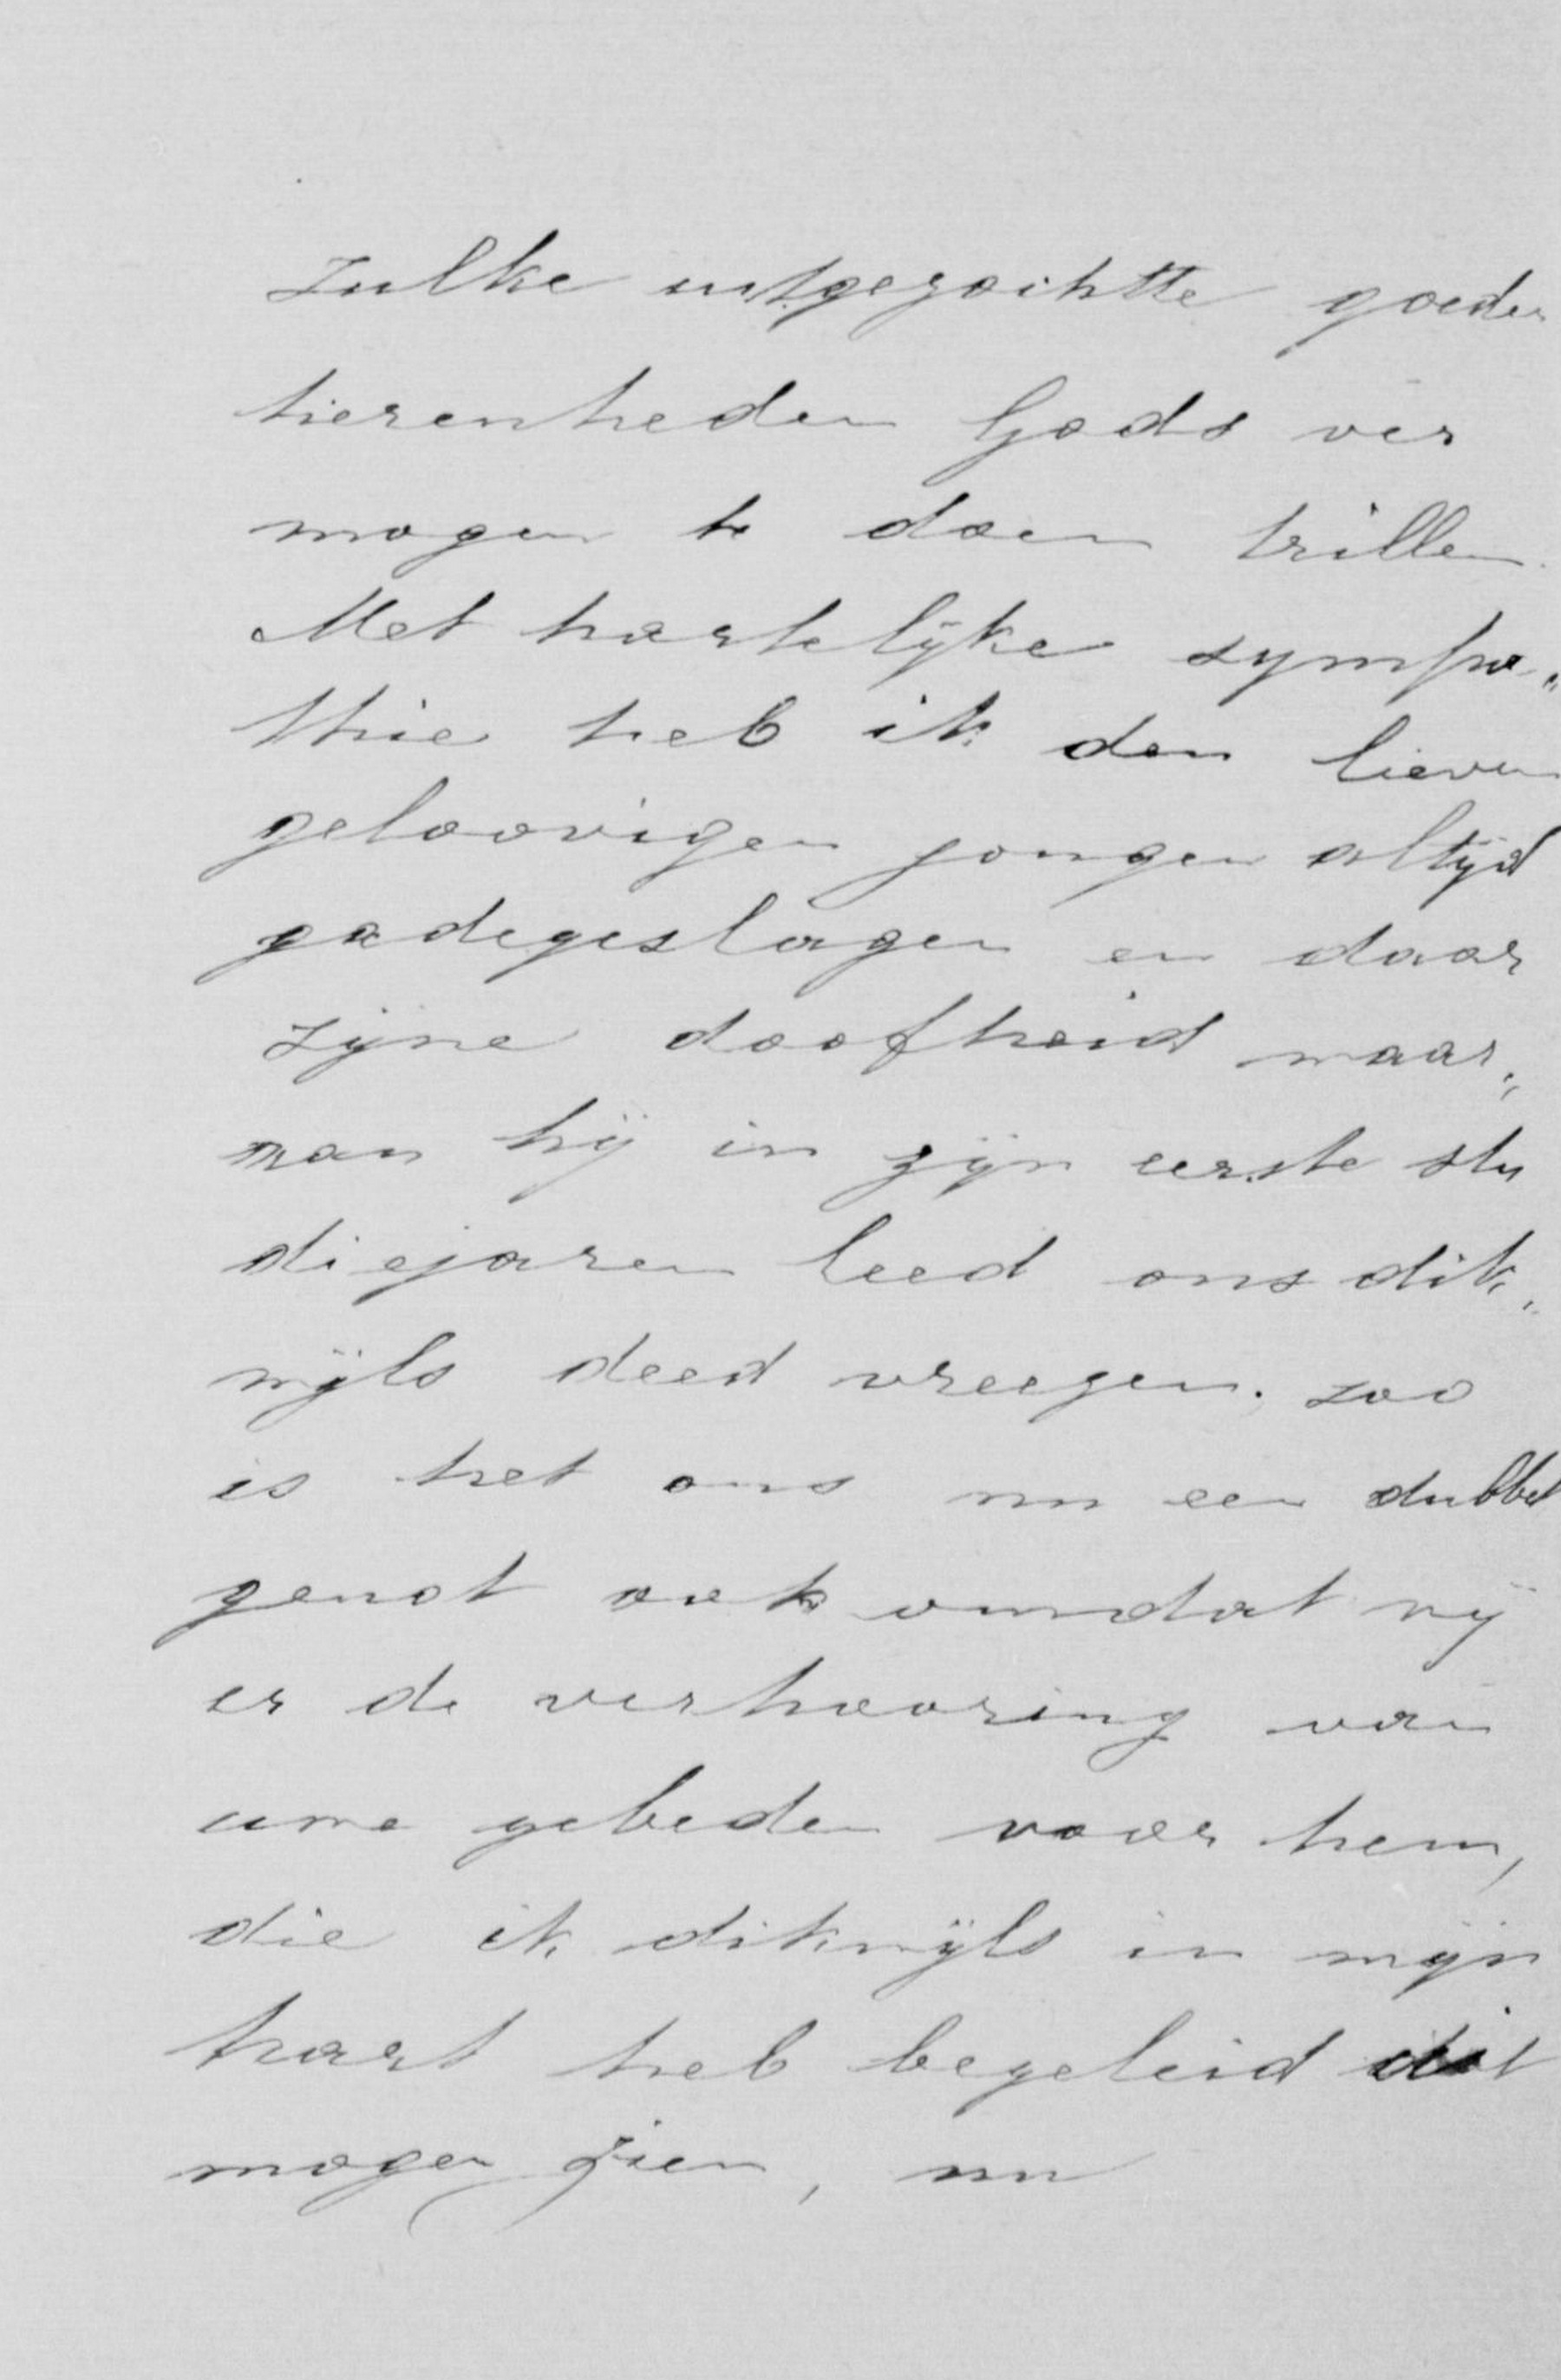 zulke uitgezochtte goeder
tierenheden Gods ver
mogen te doen trillen.
Met hartelijke sympa„
thie heb ik den lieven
geloovigen jongen altijd
gadegeslagen en daar
zijne doofheid waar„
van hij in zijn eerste stu
diejaren leed ons dik„
wijls deed vreezen. zoo
is het ons nu een dubbel
genot ook omdat wij
er de verhooring van
uwe gebeden voor hem,
die ik dikwijls in mijn
hart heb begeleid dit
mogen zien, nu